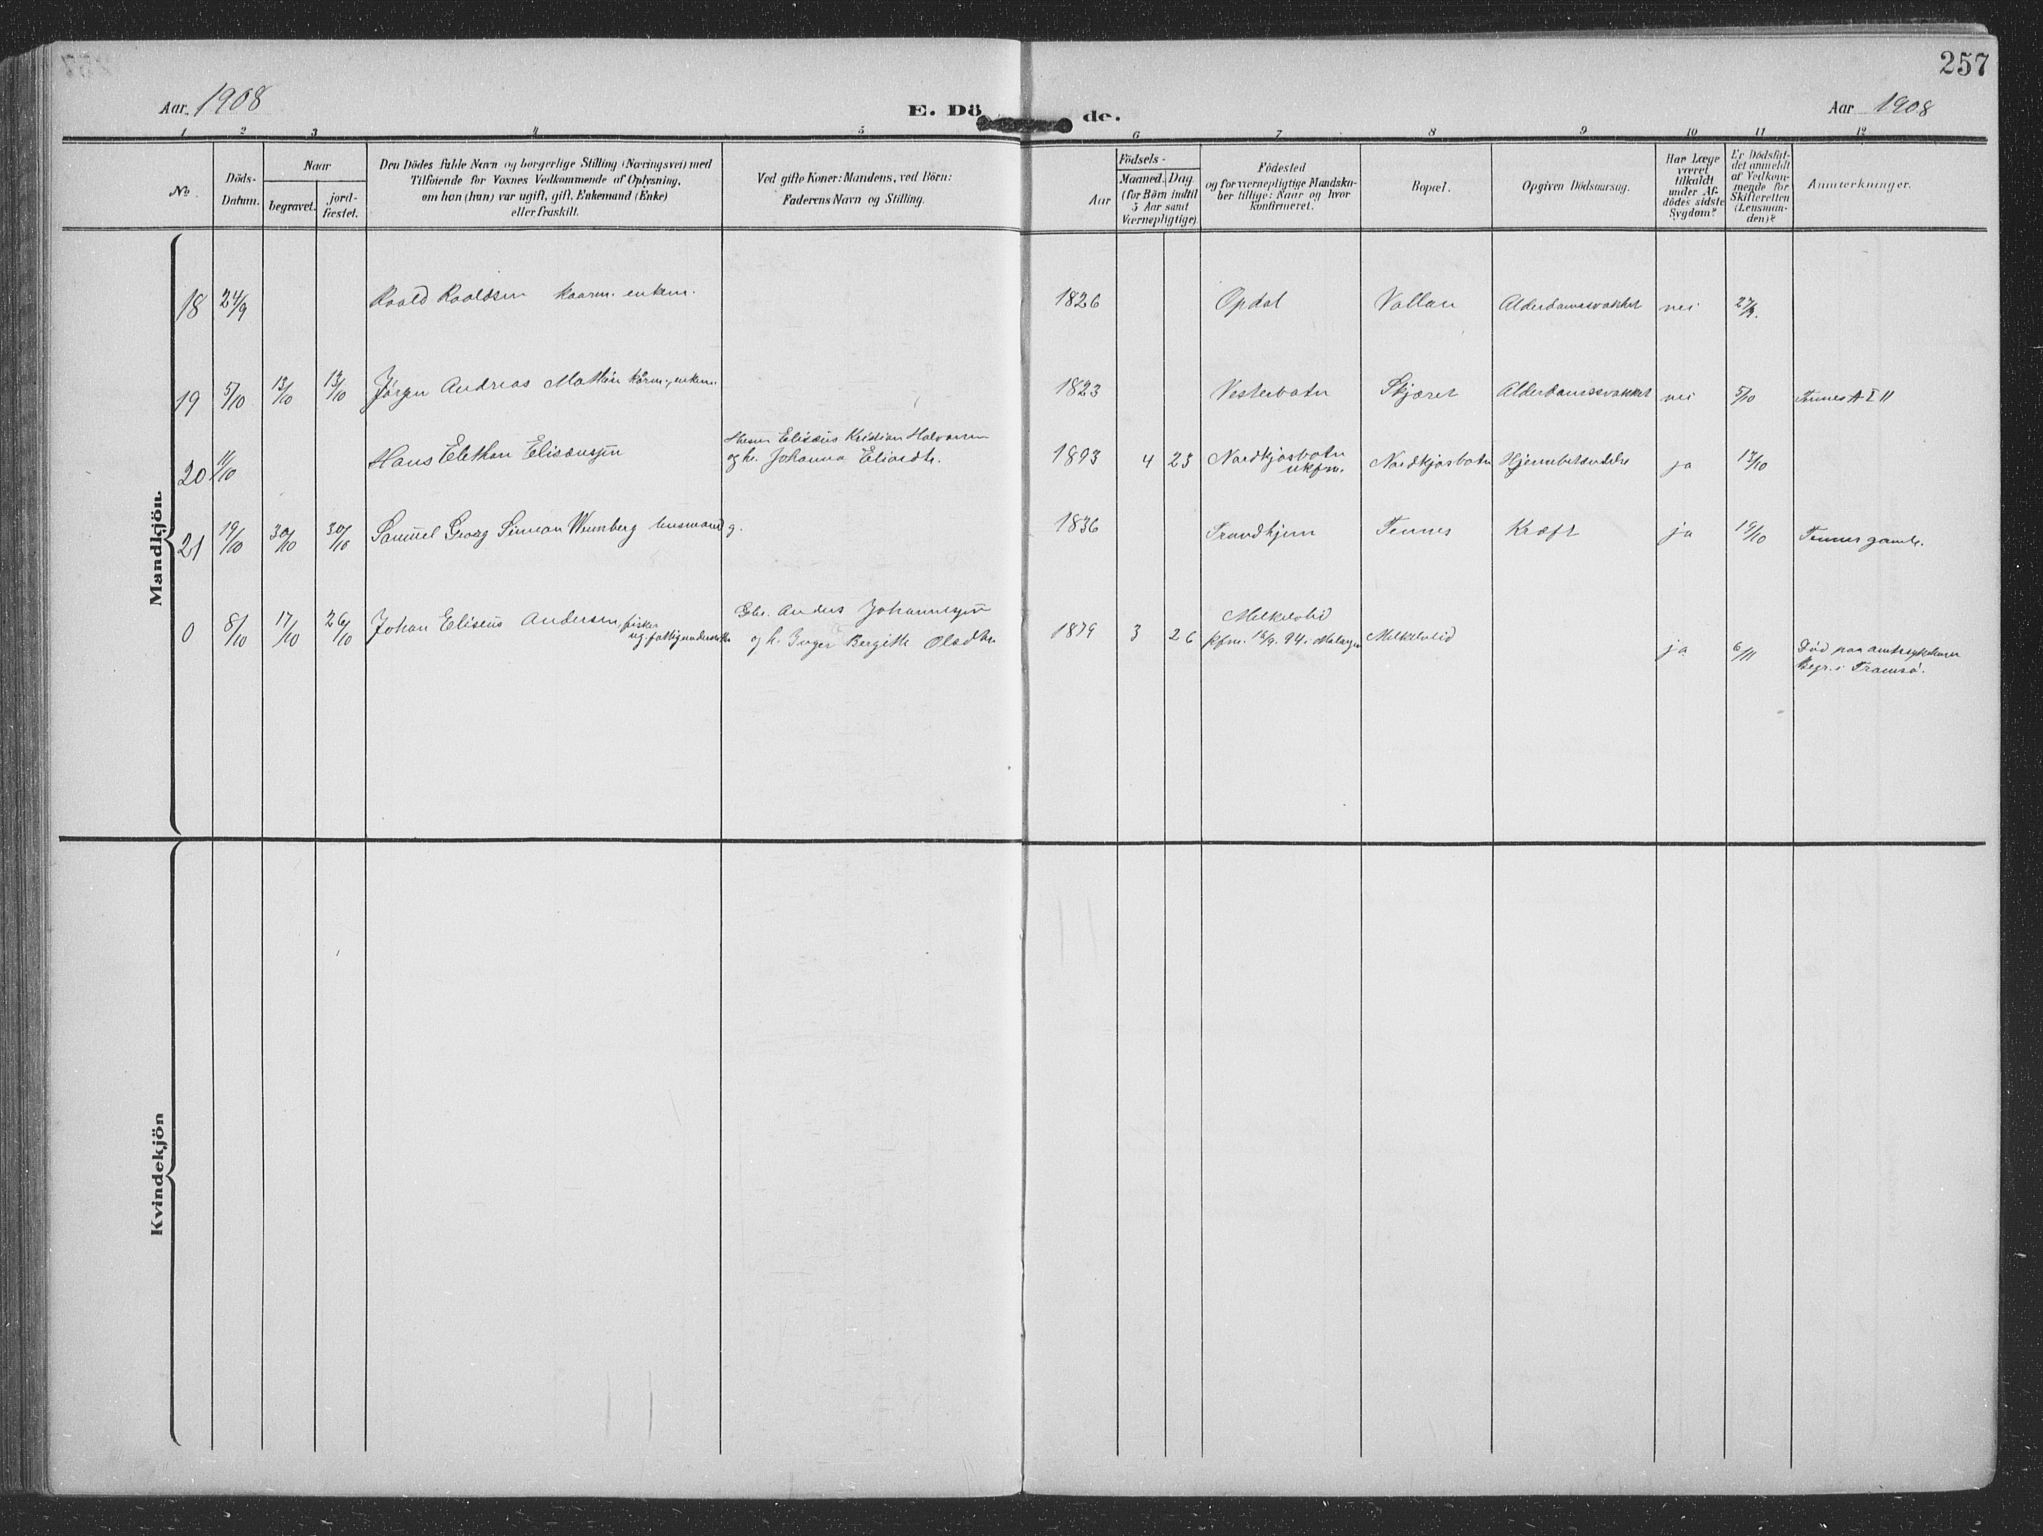 257
Aar 1908
E. Dö de.
Aar 1908
1 2 3 4 5 6 7 8 9 10 11 12
No.
Döds-
Datum.
Naar
begravet.
jord-
fæstet.
Den Dödes fulde Navn og borgerlige Stilling (Næringsvei) med
Tilföiende for Voxnes Vedkommende af Oplysning,
om han (hun) var ugift, gift, Enkemand (Enke)
eller fraskilt.
Ved gifte Koner: Mandens, ved Börn:
Faderens Navn og Stilling.
Födsels-
Aar
Maaned. Dag
(for Börn indtil
5 Aar samt
Værnepligtige)
Födested
og for værnepligtige Mandska-
ber tillige: Naar og hvor
konfirmeret.
Bopæl.
Opgiven Dödsaarsag.
Har Læge
været
tilkaldt
under Af-
dödes sidste
Sygdom?
Er Dödsfal-
det anmeldt
af Vedkom-
mende for
Skifteretten
(Lensman-
den)?
Anmærkninger.
Mandkjön.
18 24/9 Roald Roaldsen kaarm. enkem. 1826 Opdal Vollan Alderdomssvakhet nei 27/9.
19 5/10 13/10 13/10 Jørgen Andreas Mathis kårm., enkem. 1823 Vesterbotn Skjæret Alderdomssvakhet nei 5/10 Tennes A I 11
20 11/10 Hans Elethan Eliseussøn
Elisæus Kristian Halvorsen
og h. Johanna
1893 4 23 Nordkjosbotn
ukfm.
Nordkjosbotn Hjernebetændelse ja 17/10
21 19/10 30/10 30/10 Samuel Georg Simon Wennberg husmand g. 1836 Trondhjem Tennes Kræft ja 19/10 Tennes gamle.
0 8/10 17/10 26/10 Johan Eliseus Andersen, fisker
ug.
Gbr. Anders Johannessøn
og h. Inger Bergitte Olsdtr.
1879 3 26 Melkelvlid
kfm. 94 i Malangen
Melkelvlid ja 6/11 Død paa amtssykehuset
Begr. i Tromsø.
Kvindekjön